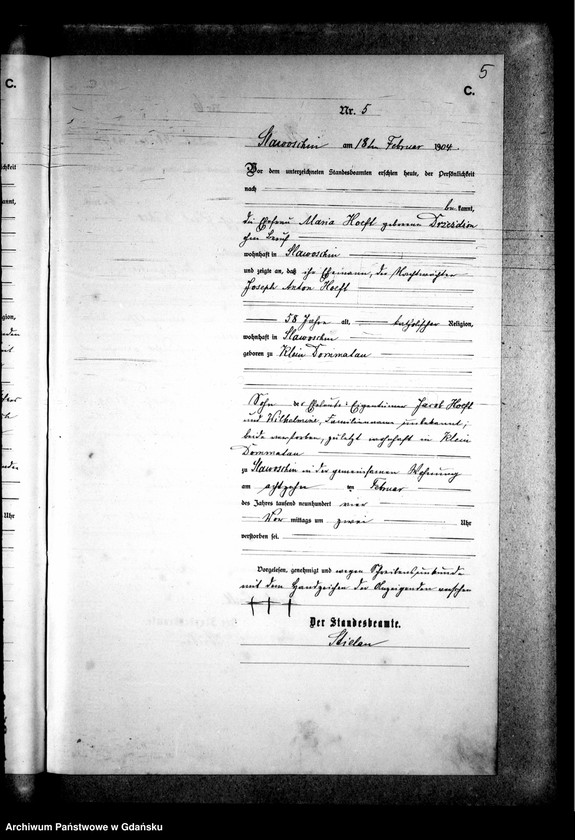 5
C.
C.
Nr. 5
Slawoschin am 18ten Februar 1904.
Vor dem unterzeichneten Standesbeamten erschien heute, der Persönlichkeit
nach
be kannt,
die Ehefrau Maria Hoeft geborene
ohne Beruf
wohnhaft in Slawoschin
und zeigte an, daß ihr Ehemann, der Nachtwächter
Joseph Anton Hoeft
58 Jahre alt, katholischer Religion,
wohnhaft in Slawoschin
geboren zu Klein Dommatau
Sohn der Eheleute: Eigentümer Jacob Hoeft
und Wilhelmine, Familienname unbekannt,
beide verstorben, zuletzt wohnhaft in Klein
Dommatau
zu Slawoschin in der gemeinsamen Wohnung
am achtzehn ten Februar
des Jahres tausend neunhundert vier
Vor mittags um zwei Uhr
verstorben sei.
Vorgelesen, genehmigt und wegen Schreibensunkunde
mit dem Handzeichen der Anzeigenden versehen
+ + +
Der Standesbeamte.
Uhr
Archiwum Państwowe w Gdańsku